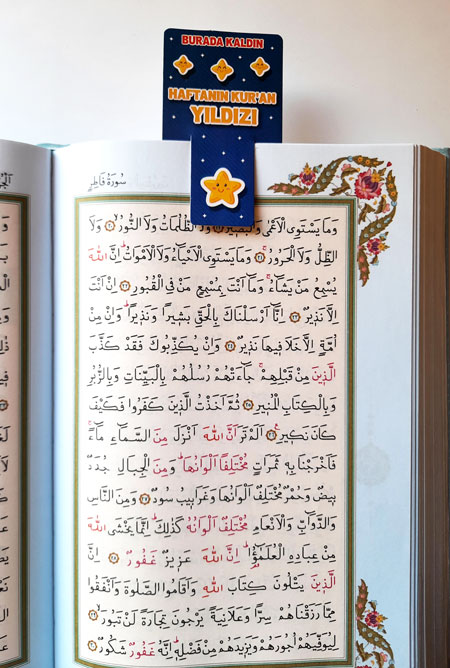 BURADA KALDIN
HAFTANIN KUR'AN
YILDIZI
سُورَةُ فَاطِرٍ
وَمَا يَسْتَوِى الْاَعْمٰى وَالْبَصٖيرُ ﴿١٩﴾ وَلَا الظُّلُمَاتُ وَلَا النُّورُ ﴿٢٠﴾ وَلَا
الظِّلُّ وَلَا الْحَرُورُ ﴿٢١﴾ وَمَا يَسْتَوِى الْاَحْيَٓاءُ وَلَا الْاَمْوَاتُ اِنَّ اللّٰهَ
يُسْمِعُ مَنْ يَشَٓاءُ وَمَٓا اَنْتَ بِمُسْمِعٍ مَنْ فِى الْقُبُورِ ﴿٢٢﴾ اِنْ اَنْتَ
اِلَّا نَذٖيرٌ ﴿٢٣﴾ اِنَّٓا اَرْسَلْنَاكَ بِالْحَقِّ بَشٖيرًا وَنَذٖيرًا وَاِنْ مِنْ
اُمَّةٍ اِلَّا خَلَا فٖيهَا نَذٖيرٌ ﴿٢٤﴾ وَاِنْ يُكَذِّبُوكَ فَقَدْ كَذَّبَ
الَّذٖينَ مِنْ قَبْلِهِمْ جَٓاءَتْهُمْ رُسُلُهُمْ بِالْبَيِّنَاتِ وَبِالزُّبُرِ
وَبِالْكِتَابِ الْمُنٖيرِ ﴿٢٥﴾ ثُمَّ اَخَذْتُ الَّذٖينَ كَفَرُوا فَكَيْفَ
كَانَ نَكٖيرِ ﴿٢٦﴾ اَلَمْ تَرَ اَنَّ اللّٰهَ اَنْزَلَ مِنَ السَّمَٓاءِ مَٓاءً
فَاَخْرَجْنَا بِهٖ ثَمَرَاتٍ مُخْتَلِفًا اَلْوَانُهَا وَمِنَ الْجِبَالِ جُدَدٌ
بٖيضٌ وَحُمْرٌ مُخْتَلِفٌ اَلْوَانُهَا وَغَرَابٖيبُ سُودٌ ﴿٢٧﴾ وَمِنَ النَّاسِ
وَالدَّوَٓابِّ وَالْاَنْعَامِ مُخْتَلِفٌ اَلْوَانُهُ كَذٰلِكَ اِنَّمَا يَخْشَى اللّٰهَ
مِنْ عِبَادِهِ الْعُلَمٰٓؤُا اِنَّ اللّٰهَ عَزٖيزٌ غَفُورٌ ﴿٢٨﴾ اِنَّ
الَّذٖينَ يَتْلُونَ كِتَابَ اللّٰهِ وَاَقَامُوا الصَّلٰوةَ وَاَنْفَقُوا
مِمَّا رَزَقْنَاهُمْ سِرًّا وَعَلَانِيَةً يَرْجُونَ تِجَارَةً لَنْ تَبُورَ ﴿٢٩﴾
لِيُوَفِّيَهُمْ اُجُورَهُمْ وَيَزٖيدَهُمْ مِنْ فَضْلِهٖ اِنَّهُ غَفُورٌ شَكُورٌ ﴿٣٠﴾